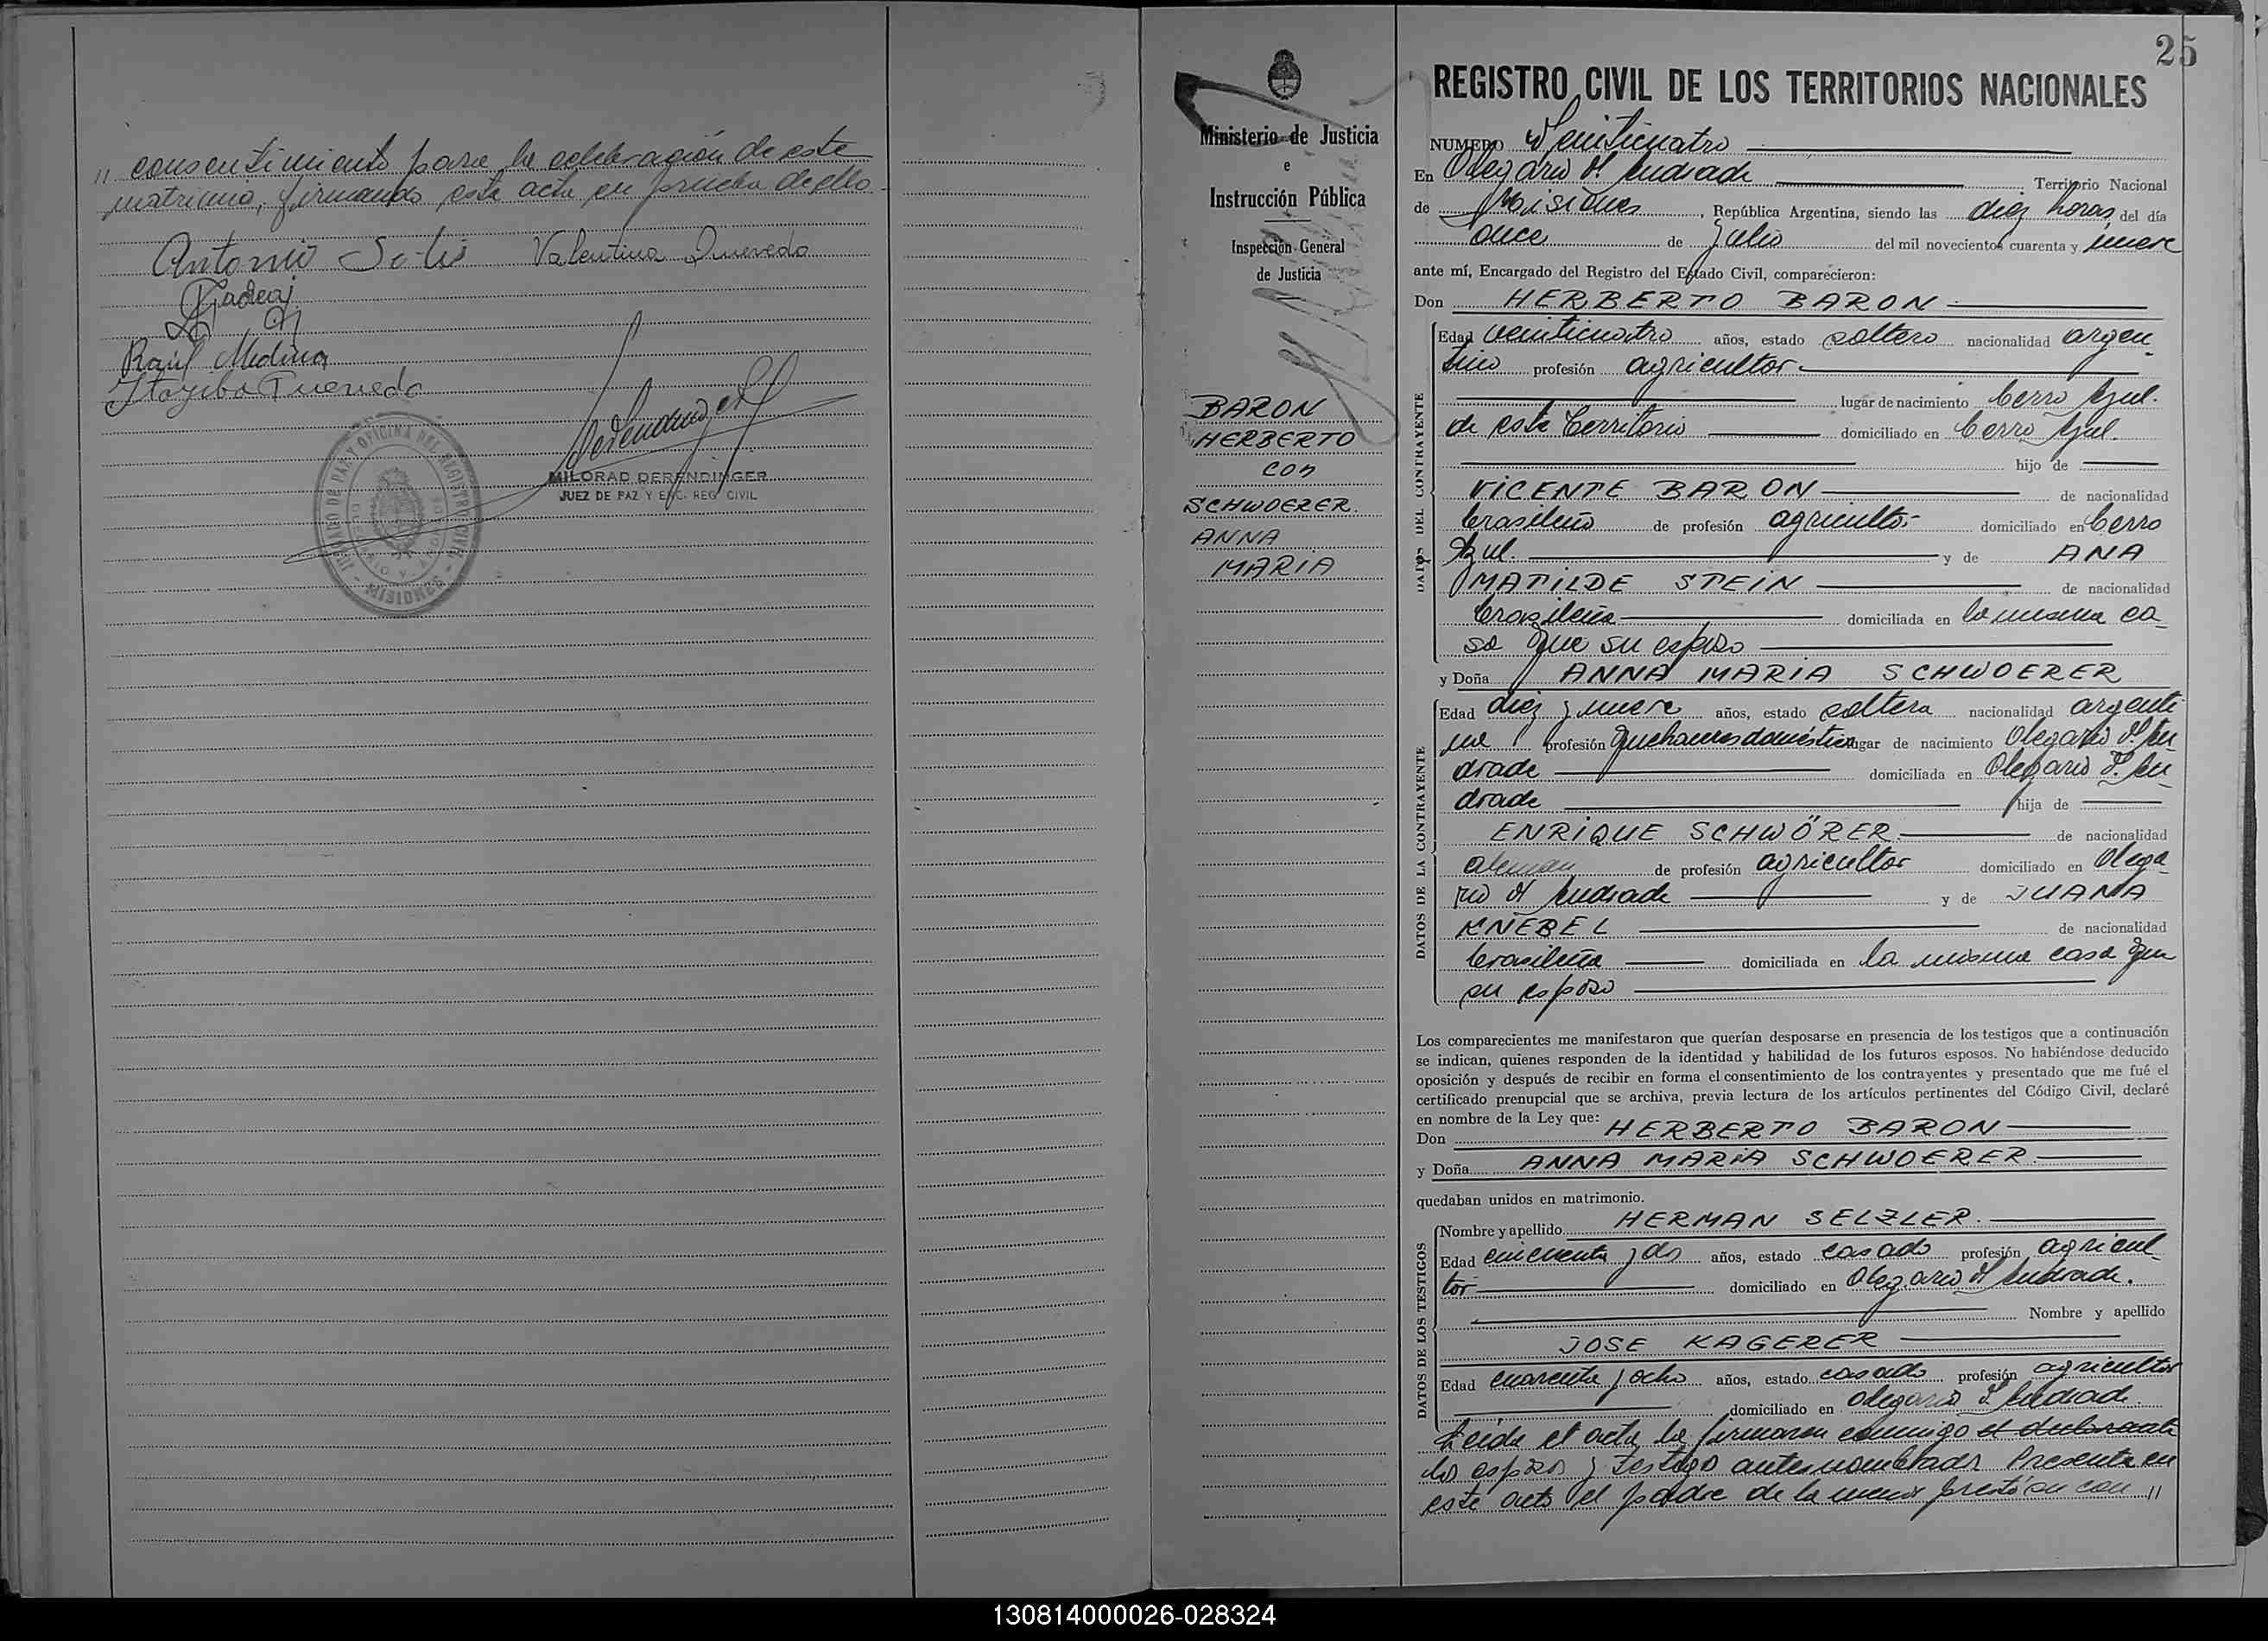 " consentimiento para la celebración de este
matrimonio, firmando esta acta en prueba de ello.
Antonio Solis Valentina Quevedo
Raúl Medina
Quevedo
MILORAD DERENDINGER
JUEZ DE PAZ Y ENC. REG. CIVIL
JUZGADO DE PAZ Y OFICINA DEL REGISTRO CIVIL
- MISIONES -
25
Ministerio de Justicia
e
Instrucción Pública
Inspección General
de Justicia
BARON
HERBERTO
con
SCHWOERER.
ANNA
MARIA
REGISTRO CIVIL DE LOS TERRITORIOS NACIONALES
NUMERO Veinticuatro
En Olegario V. Andrade Territorio Nacional
de Misiones, República Argentina, siendo las diez horas del día
once de Julio del mil novecientos cuarenta y nueve
ante mí, Encargado del Registro del Estado Civil, comparecieron:
Don HERBERTO BARON
DATOS DEL CONTRAYENTE
Edad veinticuatro años, estado soltero nacionalidad argen-
tino profesión agricultor
lugar de nacimiento Cerro Azul.
de este Territorio domiciliado en Cerro Azul.
hijo de
VICENTE BARON de nacionalidad
brasileño de profesión agricultor domiciliado en Cerro
Azul. y de ANA
MATILDE STEIN de nacionalidad
brasileña domiciliada en la misma ca-
sa que su esposo
y Doña ANNA MARIA SCHWOERER
DATOS DE LA CONTRAYENTE
Edad diez y nueve años, estado soltera nacionalidad argenti
na profesión quehaceres domésticos lugar de nacimiento Olegario V. An
drade domiciliada en Olegario V. An
drade hija de
ENRIQUE SCHWÖRER de nacionalidad
aleman de profesión agricultor domiciliado en Olega
rio V Andrade y de JUANA
KNEBEL de nacionalidad
brasileña domiciliada en la misma casa que
su esposo
Los comparecientes me manifestaron que querían desposarse en presencia de los testigos que a continuación
se indican, quienes responden de la identidad y habilidad de los futuros esposos. No habiéndose deducido
oposición y después de recibir en forma el consentimiento de los contrayentes y presentado que me fué el
certificado prenupcial que se archiva, previa lectura de los artículos pertinentes del Código Civil, declaré
en nombre de la Ley que:
Don HERBERTO BARON
y Doña ANNA MARIA SCHWOERER.
quedaban unidos en matrimonio.
DATOS DE LOS TESTIGOS
Nombre y apellido HERMAN SELZLER.
Edad cincuenta y dos años, estado casado profesión agricul-
tor domiciliado en Olegario V Andrade.
Nombre y apellido
JOSE KAGERER
Edad cuarenta y ocho años, estado casado profesión agricultor
domiciliado en Olegario V Andrade.
Leida el acta la firmaron conmigo el declarante
los esposos y testigos antes nombrados. Presente en
este acto el padre de la menor prestó su con "
130814000026-028324